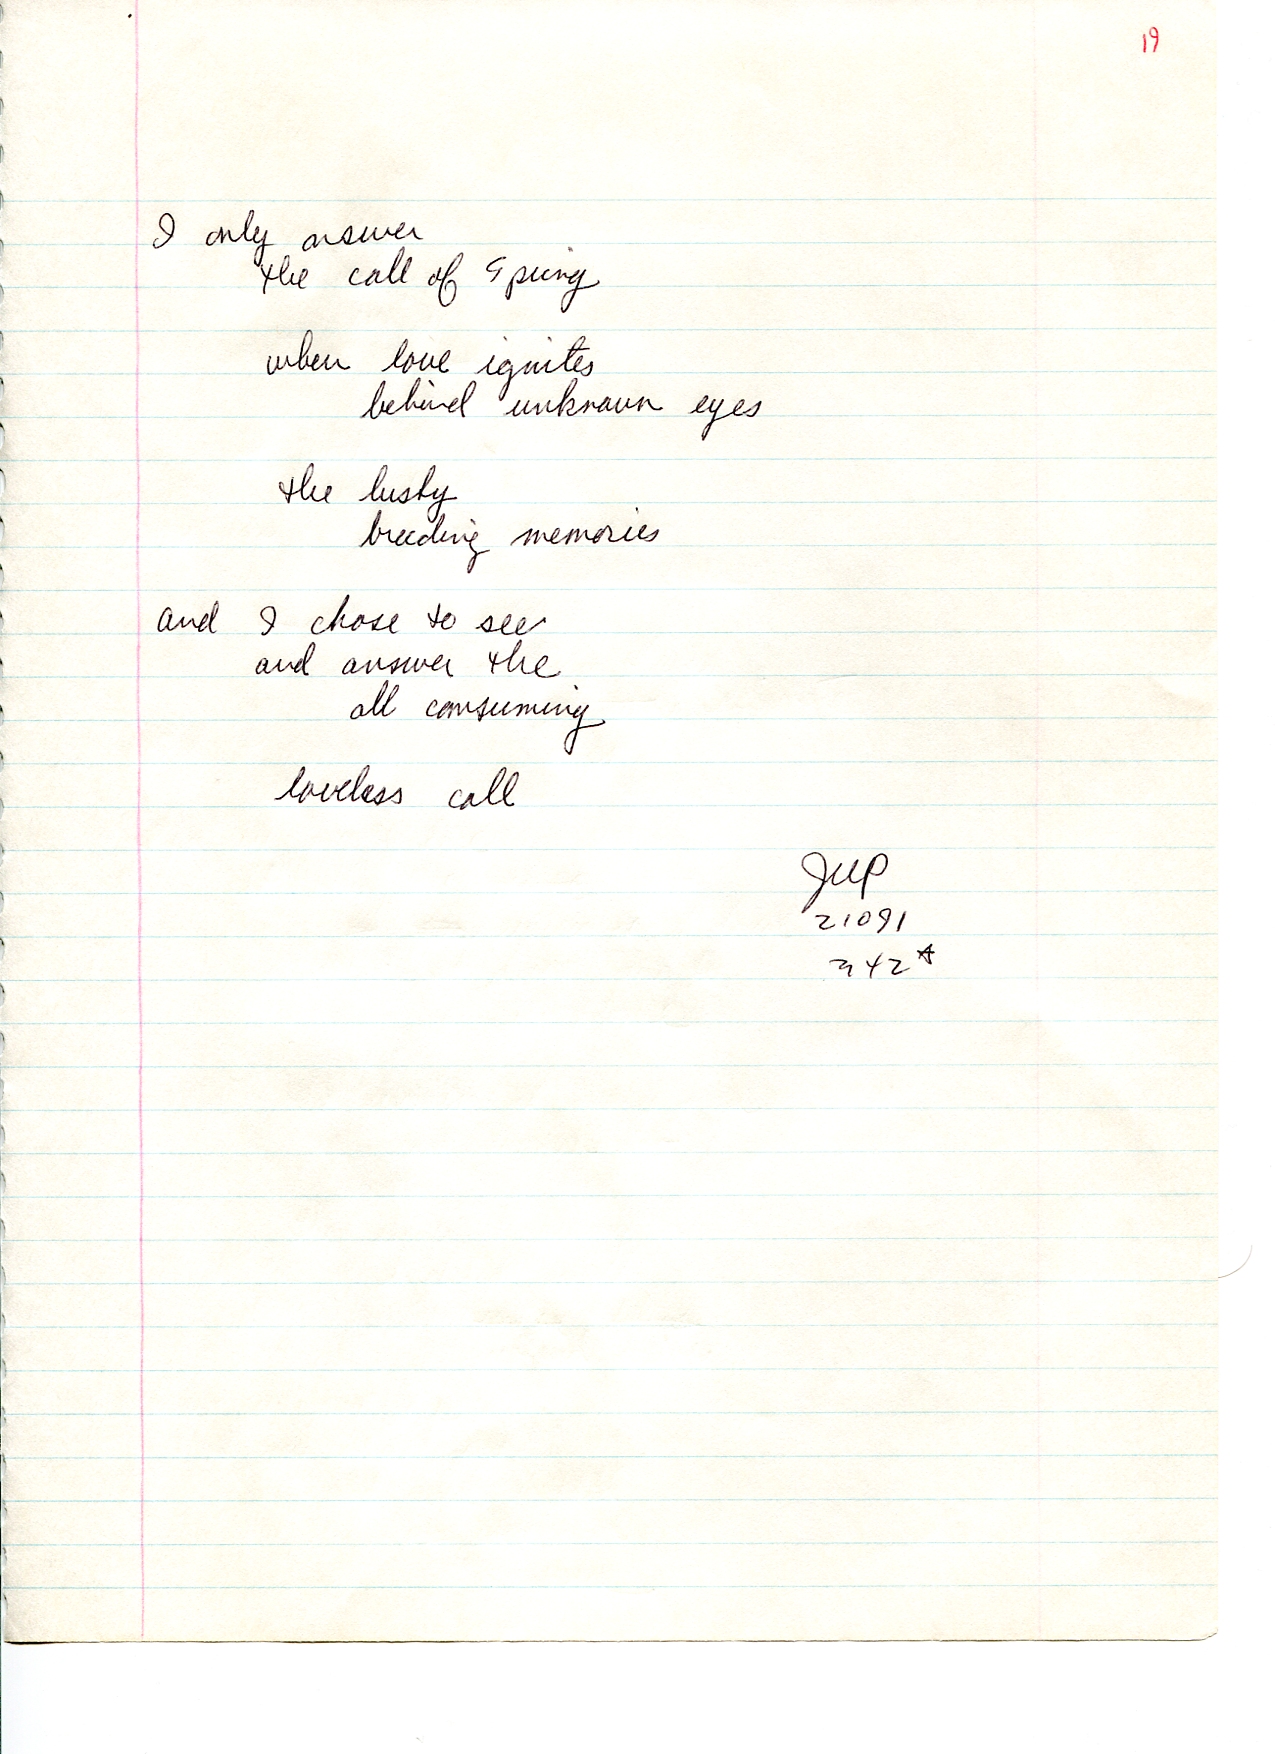 19
I only answer
the call of Spring
when love ignites
behind unknown eyes
the lusty
breeding memories
and I chose to see
and answer the
all consuming
loveless call
JWP
21091
342A